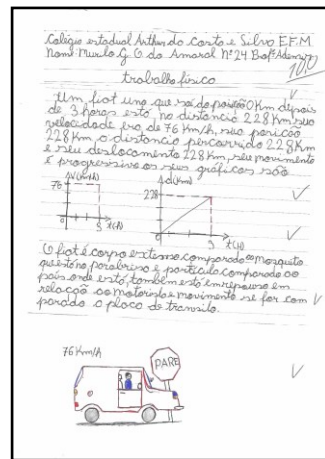 Colégio estadual Arthur da Costa e Silva E.F.M
Nome: Murilo G. O. do Amaral Nº 24 Profº Ademir
10,0
trabalho física
Um fiat uno que sai da posição 0Km depois
de 3 horas está na distância 228 Km sua
velocidade era de 76 Km/h, sua posição
228 Km a distancia percorrida 228 Km
e seu deslocamento 228 Km, seu movimento
é progressivo os seus gráficos são
V(Km/h)
76
3
t(h)
d(Km)
228
3
t(h)
O fiat é corpo extenso comparado ao mosquito
que está no parabrisa e partícula comparado ao
país onde está, também está em repouso em
relação ao motorista e movimento se for com
parado a placa de transito.
76 Km/h
PARE